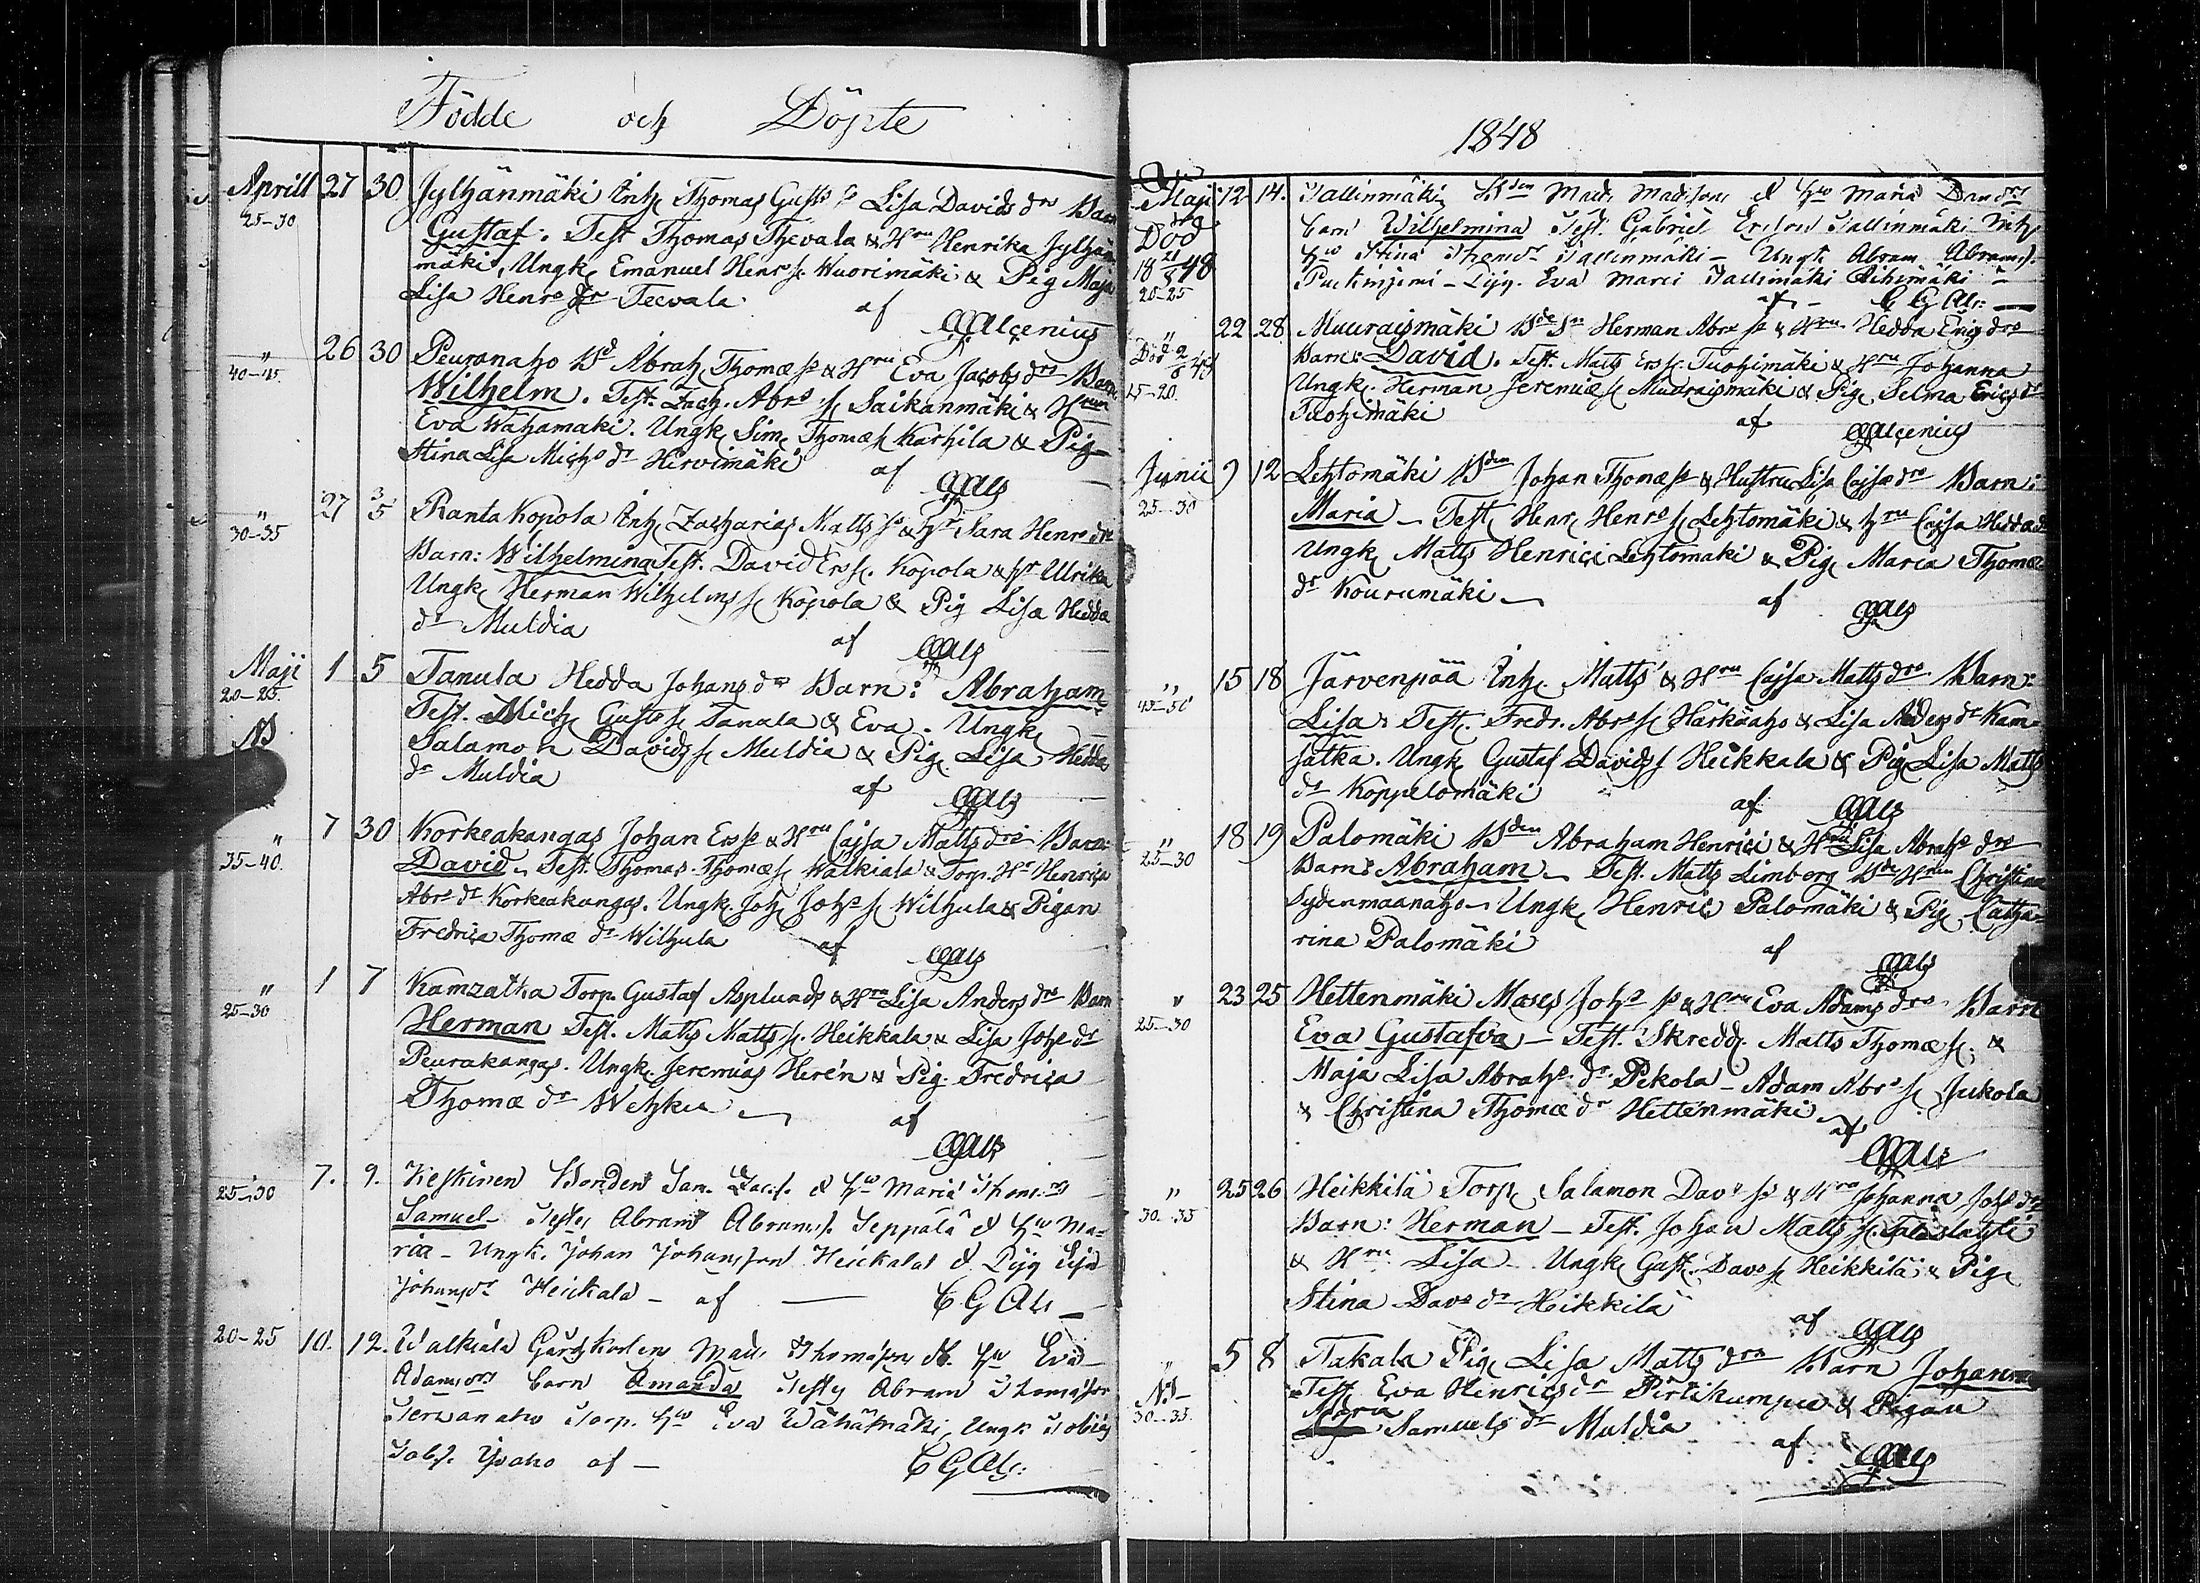 Födde och Döpte
Aprill 27 30 Jylhänmäki Inh Thomas Gust s Lisa Davids drs Barn
25–30 Gustaf. Test Thomas Thevala & Hru Henrika Jylhän
mäki, Ungk Emanuel Henrs s. Wuorimäki & Pig Maja
Lisa Henrs dr Teevala af CGAlcenius
" 26 30 Peuranaho Bd Abrah Thomæ s & Hru Eva Jacobs drs Barn
40–45. Wilhelm. Test. Zach. Abrs s. Saikanmäki & Hrun
Eva Wähämäki. Ungk Sim Thomæ s. Karhila & Pig
Stina Lisa Michs dr Hirvimäki af CGAls
27 3/5 Ranta Kopola Inh Zacharias Matts s & Hr Sara Henrs drs
"
30–35 Barn: Wilhelmina Test. David Ers s. Kopola & Hr Ulrika
Ungk Herman Wilhelms s. Kopola & Pig Lisa Hedda
dr Muldia af CGAls
Maji 1 5 Tanula Hedda Johans dr Barn: Abraham
20–25. Test. Mich Gusts s. Tanula & Eva. Ungk
Salamon Davids s. Muldia & Pig. Lisa Hedda
dr Muldia af CGAls
" 7 30 Korkeakangas Johan Ers s & Hru Cajsa Matts drs Barn:
35–40. David. Test. Thomas Thomæ s. Walkiala & Torp. Hr Henrica
Abrs dr Korkeakangas. Ungk. Joh Johs s. Wilhula & Pigan
Fredrica Thomæ dr Wilhula af CGAls
" 1 7 Kamzatka Torp. Gustaf Asplunds & Hru Lisa Anders drs Barn
25–30 Herman Test. Matts Matts s. Heikkala & Lisa Johs dr
Peurakangas. Ungk. Jeremias Herén & Pig. Fredrica
Thomæ dr Wehku af
CGAls
25–30 7. 9. Keskinen Bonden Sam. & Hu Maria Thom.
Samuel Testes Abram Abrams s. Seppälä & Hu Ma=
ria – Ungk. Johan Johansson Heickala & Pig
Johans dr Heickala – af — CGAls
20–25 10. 12. Walkiala Gårdskarlen Matts Thomasson & Hu Eva
Adams drs barn Amanda Testes Abram Thomasson
Torp. Hu Eva Wähämäki, Ungk Tobias
af – CGAls:
1848
Maji 12 14. Tallinmäki Bden Matts Mattsson & Hu Maria
Död barn Wilhelmina Test. Gabriel Ersson Tallinmäki Inh
18 21/5 48 Hu Stina Tallinmäki – Ungk Abram Abrams s.
20–25 – Pig. Eva Tallinmäki
af – CGAls: —
" 22 28 Muuraismäki Bde Sn Herman Abrs s & Hru Hedda Erics drs
Död 2/6 48 Barn: David. Test. Matts Ers s. Tuohimäki & Hru Johanna
15–20. Ungk. Herman Jeremiæ s. Muuraismäki & Pig. Selma Erics dr
Tuohimäki af CGAlcenius
Junii 9 12 Lehtomäki Bden Johan Thomæ s & Hustru Lisa Cajsæ drs Barn:
25–30 Maria – Test. Henr Henrs s. Lehtomäki & Hru Cajsa Hedda dr
Ungk Matts Henrici Lehtomäki & Pig Maria Thomæ
dr Kourumäki af CGAls
" 15 18 Järvenpää Inh Matts & Hru Cajsa Matts drs Barn:
45–50 Lisa. Test. Fredr. Abrs s. Härkäaho & Lisa Anders dr Kam=
satka. Ungk Gustaf Davids s Heikkala & Pig Lisa Matts
dr Koppelomäki af CGAls
" 18 19 Palomäki Bden Abraham Henrici & Hru Lisa Abrahs drs
25–30 Barn: Abraham – Test. Matts Limberg Bde Hrun Christina
Sydenmaanaho – Ungk Henric Palomäki & Pig Catha=
rina Palomäki af CGAls
" 23 25 Hettenmäki Moses Johs s & Hru Eva Adams drs Barn
25–30 Eva Gustafva – Test. Skredd. Matts Thomæ s. &
Maja Lisa Abrahs. dr. Pekola – Adam Abrs s. Jukola
& Christina Thomæ dr Hettenmäki
af CGAls
" 25 26 Heikkilä Torp. Salamon Davs s & Hru Johanna Johs drs
30–35 Barn: Herman – Test. Johan Matts s.
& Hru Lisa – Ungk Gust. Davs s. Heikkilä & Pig.
Stina Davs dr Heikkilä af CGAls
" 5 8 Takala Pig. Lisa Matts drs Barn Johanna
Test. Eva Henrics dr Pirttikumpu & Pigan
30–35. Maria Samuels dr Muldia af CGAls